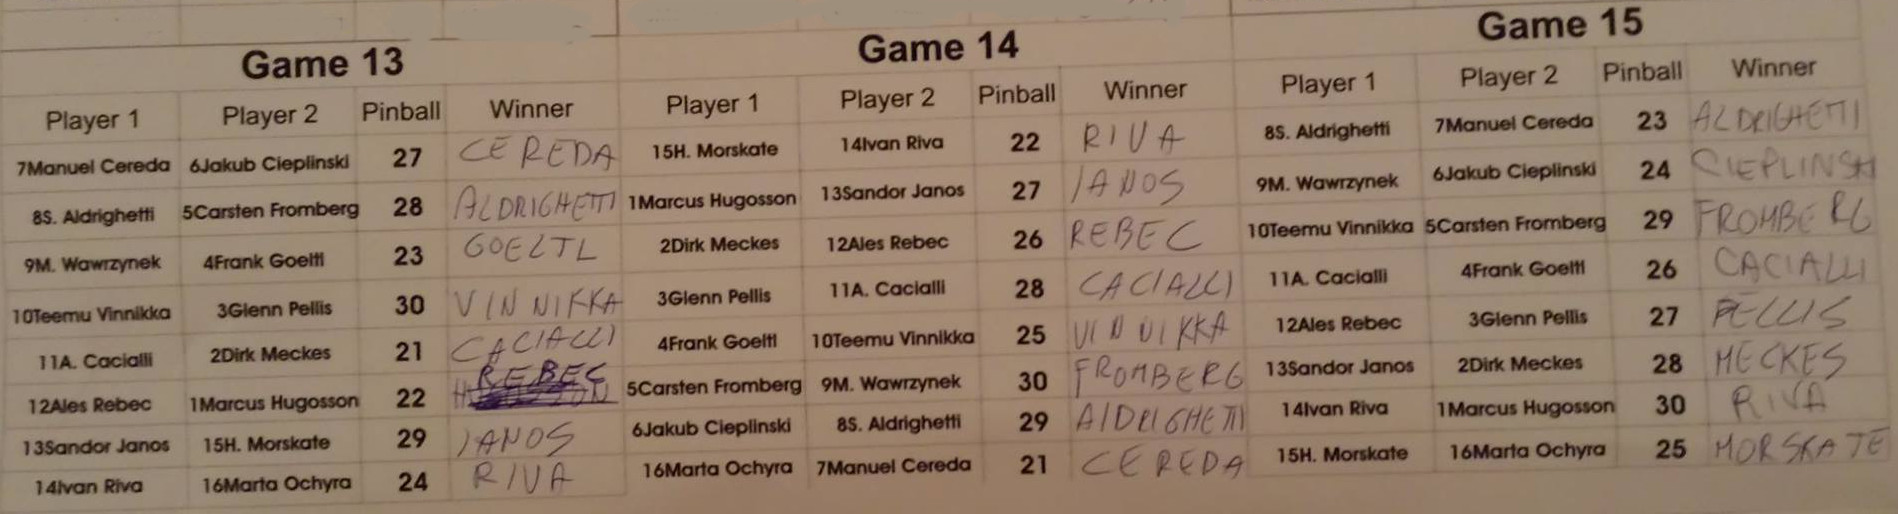 Game 13
Player 1 Player 2 Pinball Winner
7Manuel Cereda 6Jakub Cieplinski 27 CEREDA
8S. Aldrighetti 5Carsten Fromberg 28 ALDRIGHETTI
9M. Wawrzynek 4Frank Goeltl 23 GOELTL
10Teemu Vinnikka 3Glenn Pellis 30 VINNIKKA
11A. Cacialli 2Dirk Meckes 21 CACIALLI
12Ales Rebec 1Marcus Hugosson 22 REBEC
13Sandor Janos 15H. Morskate 29 JANOS
14Ivan Riva 16Marta Ochyra 24 RIVA
Game 14
Player 1 Player 2 Pinball Winner
15H. Morskate 14Ivan Riva 22 RIVA
1Marcus Hugosson 13Sandor Janos 27 JANOS
2Dirk Meckes 12Ales Rebec 26 REBEC
3Glenn Pellis 11A. Cacialli 28 CACIALLI
4Frank Goeltl 10Teemu Vinnikka 25 VINNIKKA
5Carsten Fromberg 9M. Wawrzynek 30 FROMBERG
6Jakub Cieplinski 8S. Aldrighetti 29 AlDRIGHETTI
16Marta Ochyra 7Manuel Cereda 21 CEREDA
Game 15
Player 1 Player 2 Pinball Winner
8S. Aldrighetti 7Manuel Cereda 23 ALDRIGHETTI
9M. Wawrzynek 6Jakub Cieplinski 24 CIEPLINSKI
10Teemu Vinnikka 5Carsten Fromberg 29 FROMBERG
11A. Cacialli 4Frank Goeltl 26 CACIALLI
12Ales Rebec 3Glenn Pellis 27 PELLIS
13Sandor Janos 2Dirk Meckes 28 MECKES
14Ivan Riva 1Marcus Hugosson 30 RIVA
15H. Morskate 16Marta Ochyra 25 MORSKATE